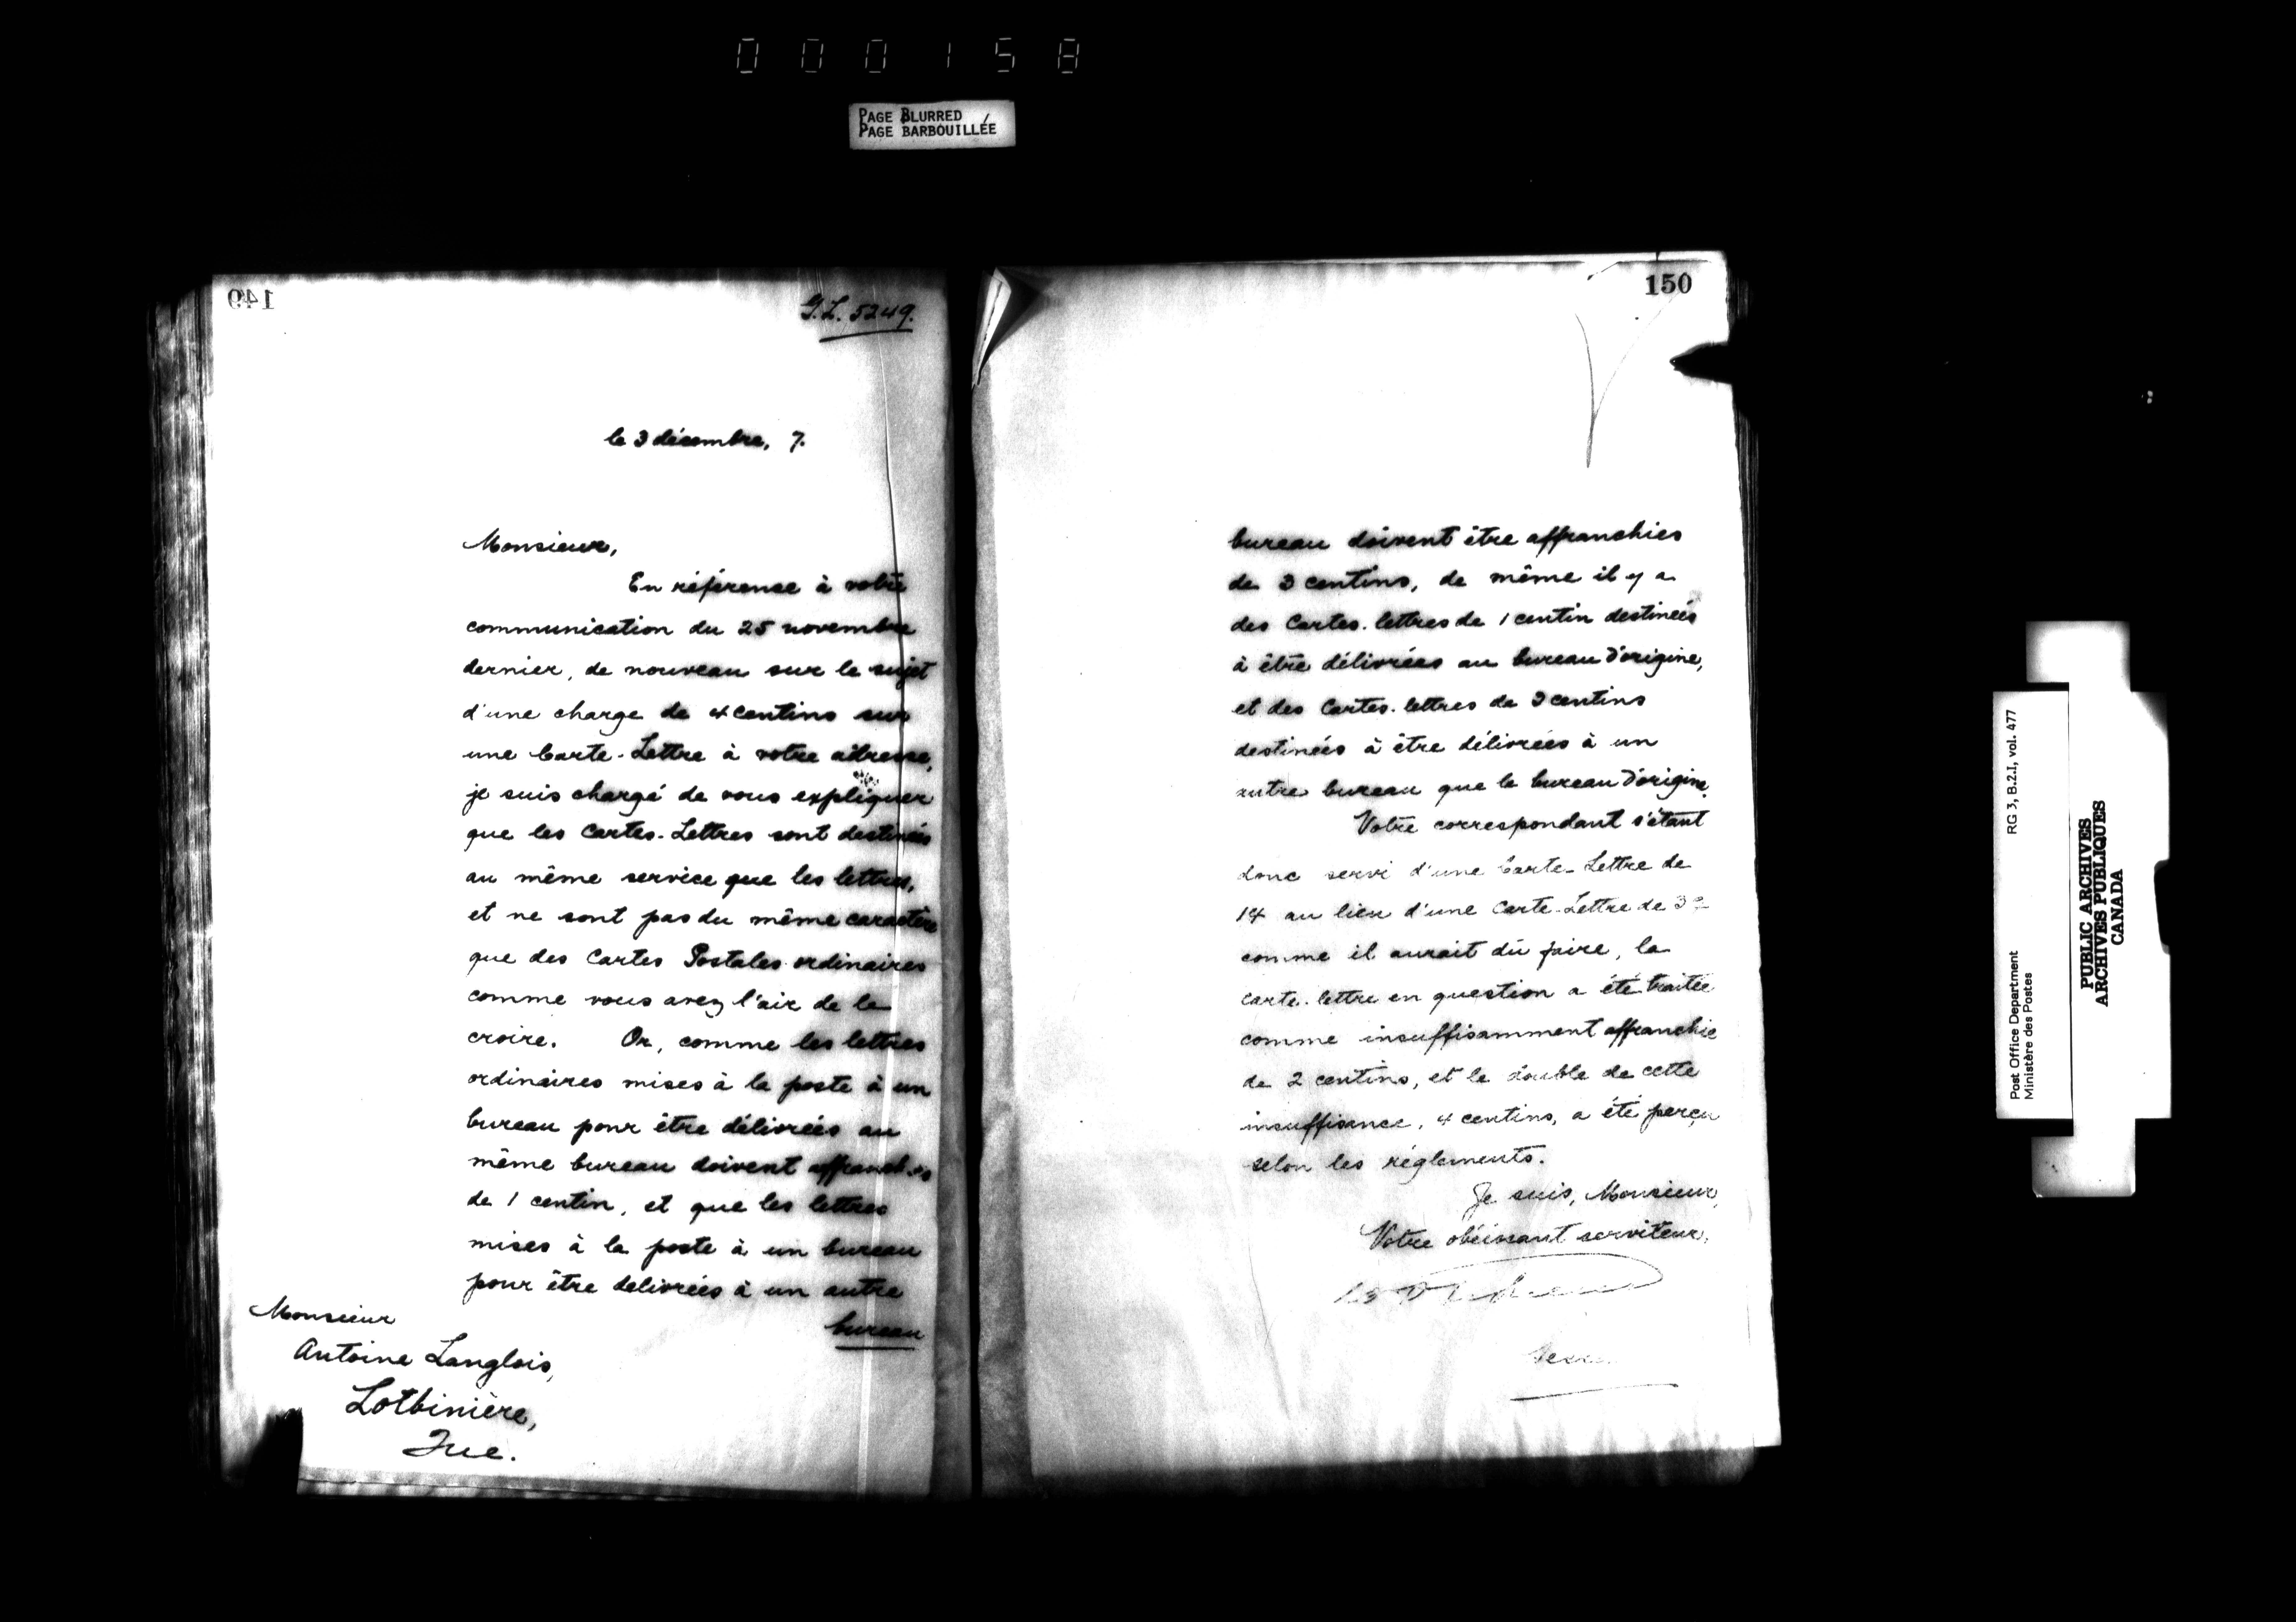 000158
PAGE BLURRED
PAGE BARBOUILLÉE
149
G.L. 5249.
le 3 décembre, 7.
Monsieur,
En référence à votre
communication du 25 novembre
dernier, de nouveau sur le sujet
d'une charge de 4 centins sur
une Carte-Lettre à votre adresse,
je suis chargé de vous expliquer
que les Cartes-Lettres sont destinées
au même service que les lettres,
et ne sont pas du même caractère
que des Cartes Postales ordinaires
comme vous avez l'air de le
croire. Or, comme les lettres
ordinaires mises à la poste à un
bureau pour être délivrées au
même bureau doivent affranchies
de 1 centin, et que les lettres
mises à la poste à un bureau
pour être delivrées à un autre
bureau
Monsieur
Antoine Langlois,
Lotbinière,
Que.
150
bureau doivent être affranchies
de 3 centins, de même il y a
des Cartes-lettres de 1 centin destinées
à être délivrées au bureau d'origine,
et des Cartes-lettres de 3 centins
destinées à être délivrées à un
autre bureau que le bureau d'origine.
Votre correspondant s'étant
donc servi d'une Carte-Lettre de
1¢ au lieu d'une Carte-Lettre de 3¢
comme il aurait dû faire, la
carte-lettre en question a été traitée
comme insuffisamment affranchie
de 2 centins, et le double de cette
insuffisance, 4 centins, a été perçu
selon les réglements.
Je suis, Monsieur,
Votre obéissant serviteur,
Post Office Department
Ministère des Postes
RG 3, B.2.I, vol. 477
PUBLIC ARCHIVES
ARCHIVES PUBLIQUES
CANADA